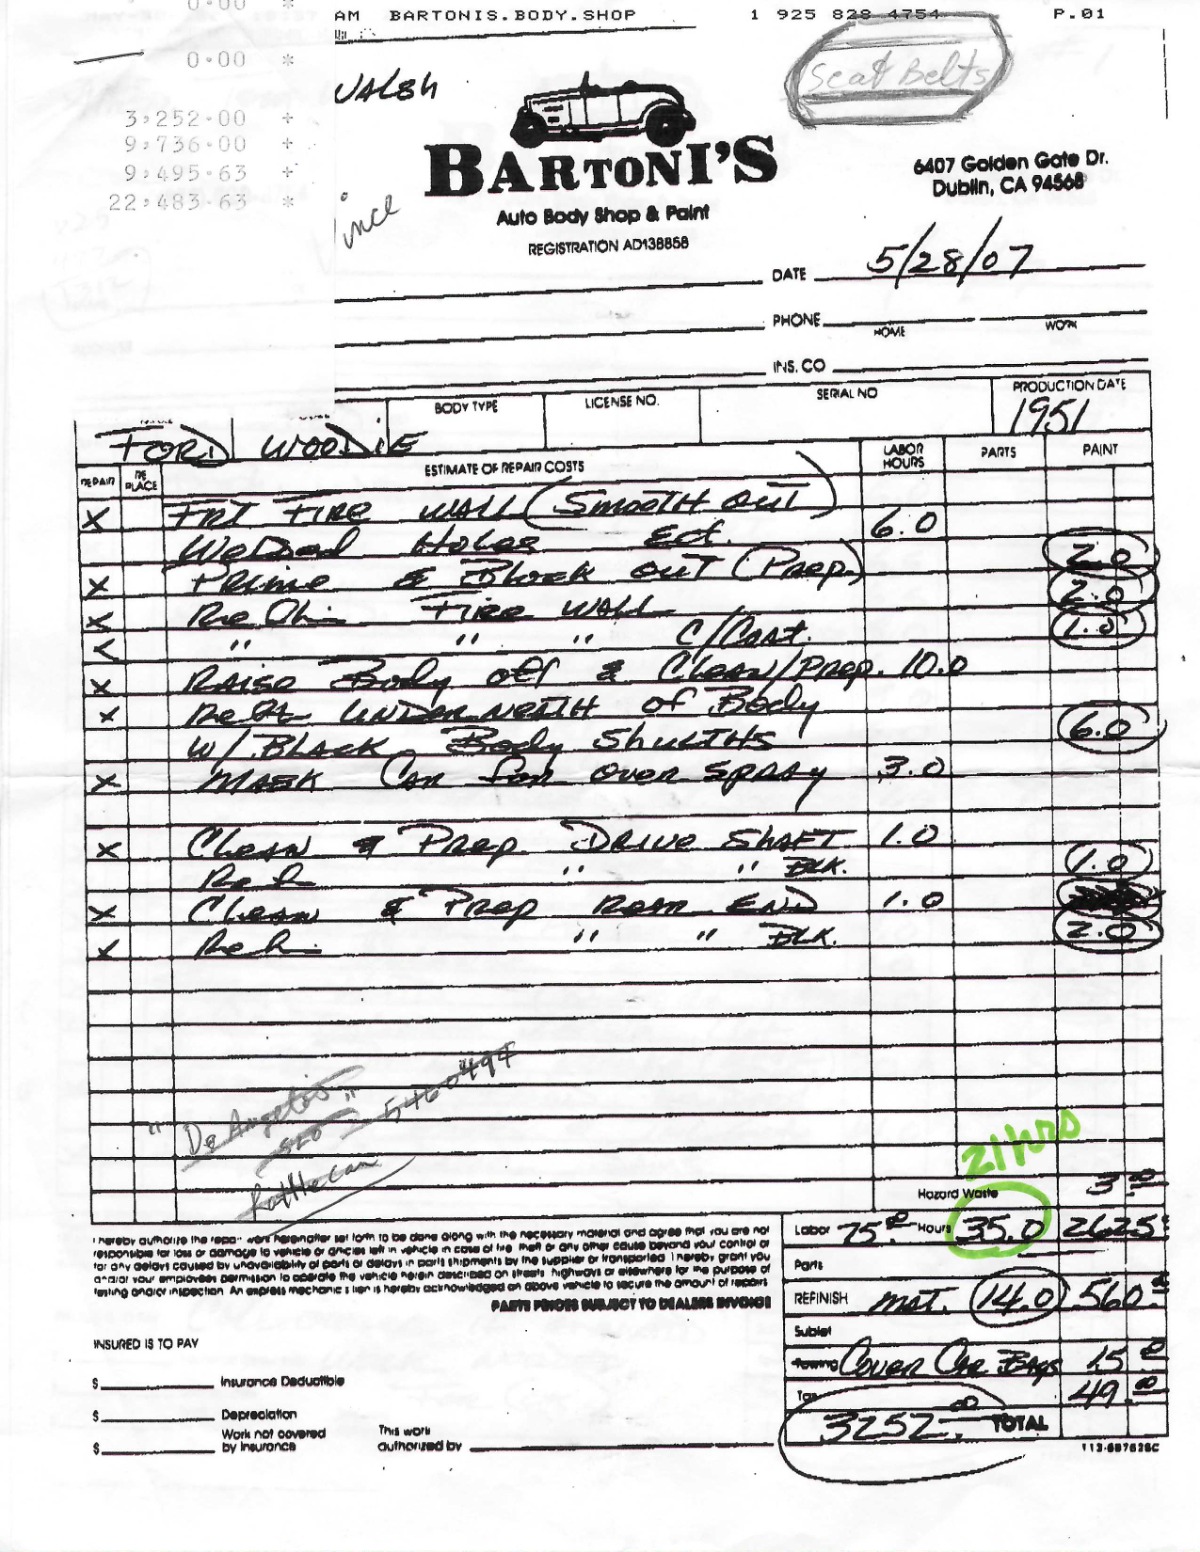 0·00 *
AM BARTONIS.BODY.SHOP 1 925 828 4754 P.01
0·00 *
Seat Belts
WALSH
3,252·00 +
9,736·00 +
9,495·63 +
22,483·63 *
BARTONI'S
6407 Golden Gate Dr.
Dublin, CA 94568
Vince
Auto Body Shop & Paint
REGISTRATION AD138858
DATE 5/28/07
PHONE
HOME WORK
INS. CO
BODY TYPE LICENSE NO. SERIAL NO PRODUCTION DATE
FORD WOODIE 1951
REPAIR RE PLACE ESTIMATE OF REPAIR COSTS LABOR HOURS PARTS PAINT
X FRT FIRE WALL (SMOOTH OUT) 6.0
Holes Ect. 2.0
X Prime & Block OUT (Prep.) 2.0
X FIRE WALL 1.0
" " " C/Coat.
X RAISE Body off & CLEAN/Prep. 10.0
X UNDERNEATH of Body
W/. BLACK Body 6.0
X MASK CAR for over SPRAY 3.0
X Clean & Prep DRIVE SHAFT 1.0
" " BLK. 1.0
X Clean & Prep REAR END 1.0
X " " BLK. 2.0
" De Angelo's "
5460494
21 hrs
Hazard Waste 3.00
Labor 75.00 Hours 35.0 2625
Parts
REFINISH mat. 14.0 560.
Sublet
Towing Cover Car Bags 15.00
Tax 49.00
3252.00 TOTAL
I hereby authorize the repair work hereinafter set forth to be done along with the necessary material and agree that you are not
responsible for loss or damage to vehicle or articles left in vehicle in case of fire, theft or any other cause beyond your control or
for any delays caused by unavailability of parts or delays in parts shipments by the supplier or transporter. I hereby grant you
and/or your employees permission to operate the vehicle herein described on streets, highways or elsewhere for the purpose of
testing and/or inspection. An express mechanic's lien is hereby acknowledged on above vehicle to secure the amount of repairs
PARTS PRICES SUBJECT TO DEALERS INVOICE
INSURED IS TO PAY
$ Insurance Deductible
$ Depreciation
$ Work not covered by insurance
This work authorized by
113-687626C